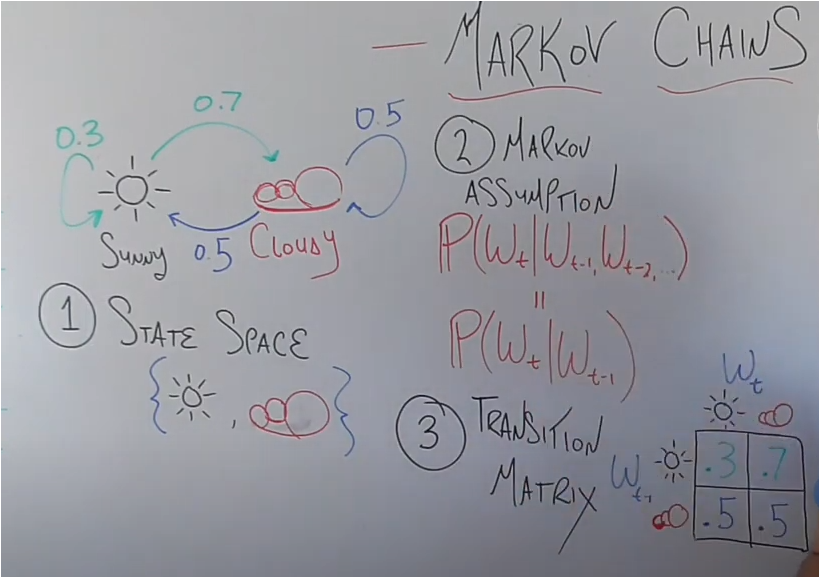 — MARKOV CHAINS
0.7
0.3
0.5
Sunny
0.5
Cloudy
① STATE SPACE
{ , }
② MARKOV
ASSUMPTION
P(Wt|Wt-1, Wt-2, ...)
=
P(Wt|Wt-1)
③ TRANSITION
MATRIX
Wt
Wt-1
.3 .7
.5 .5